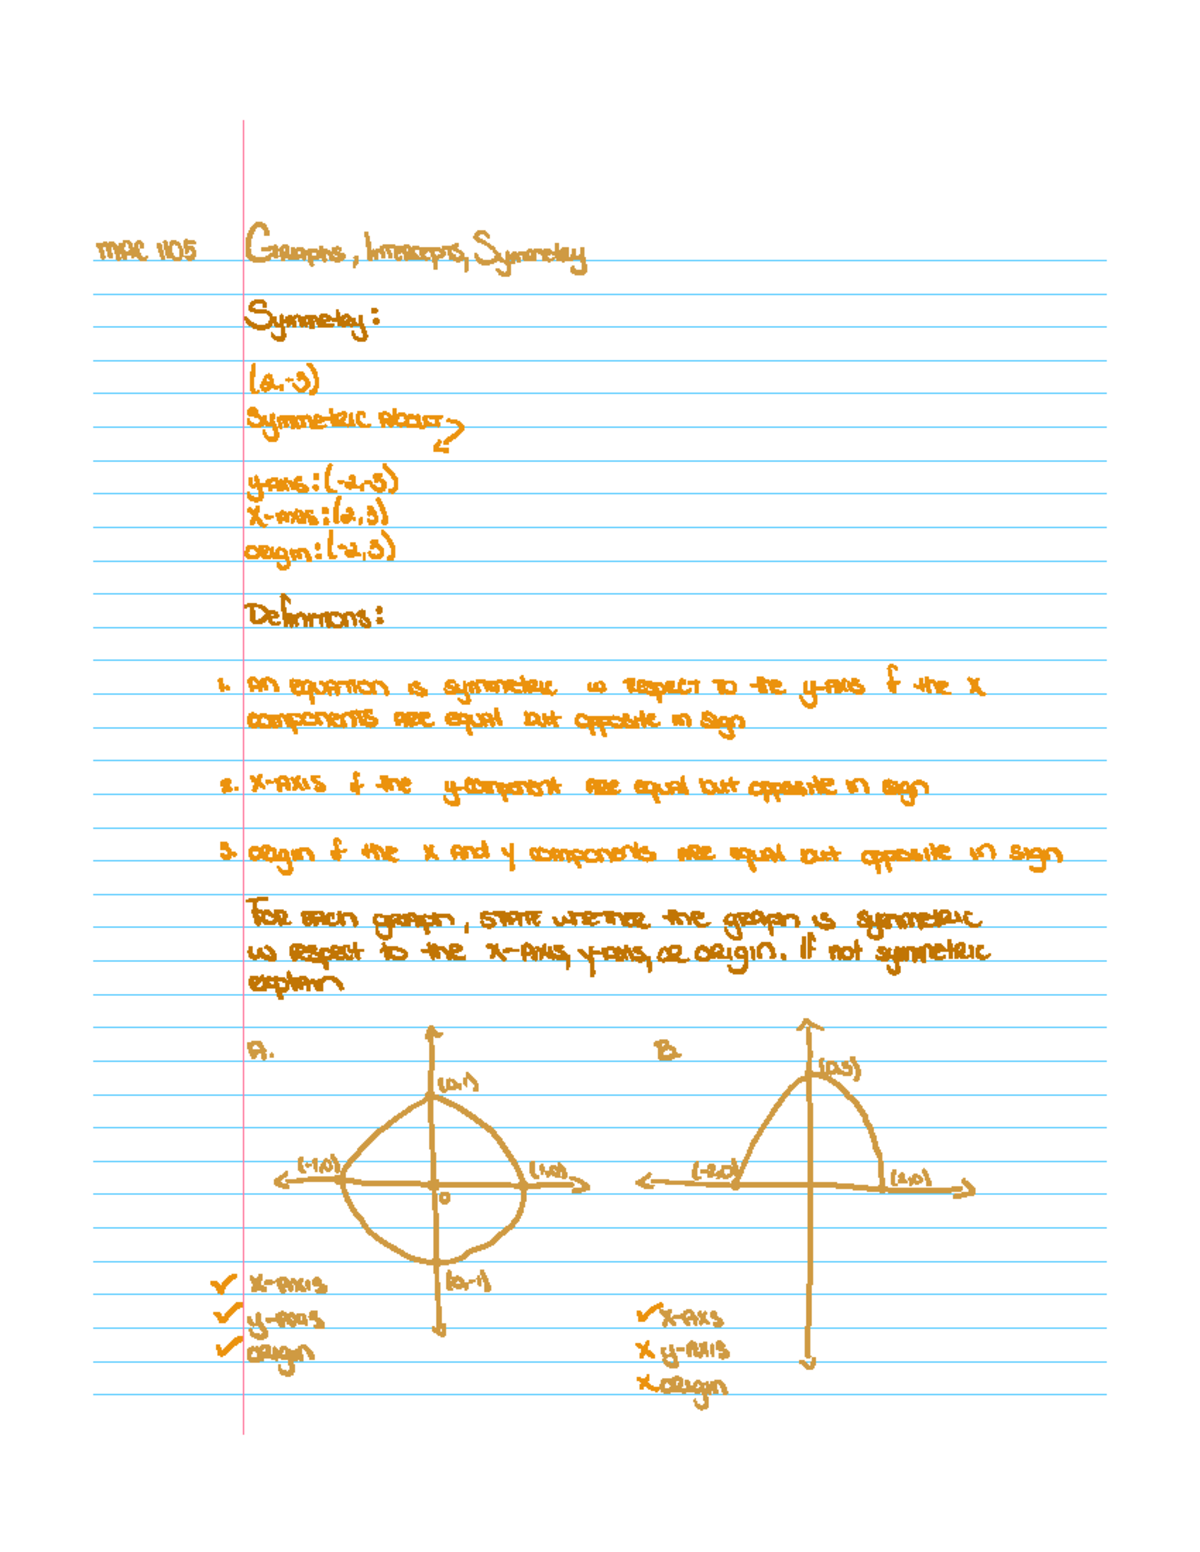 MAC 1105
Graphs, Intercepts, Symmetry
Symmetry:
(2,-3)
Symmetric About
y-axis: (-2,-3)
x-axis: (2,3)
origin: (-2,3)
Definitions:
1. An equation is symmetric w respect to the y-axis if the x
components are equal but opposite in sign
2. x-axis if the y-component are equal but opposite in sign
3. origin if the x and y components are equal but opposite in sign
For each graph, state whether the graph is symmetric
w respect to the x-axis, y-axis, or origin. If not symmetric
explain
A.
(0,1)
(-1,0)
(1,0)
0
(0,-1)
✓ x-axis
✓ y-axis
✓ origin
B.
(0,3)
(-2,0)
(2,0)
✓ x-axis
x y-axis
x origin